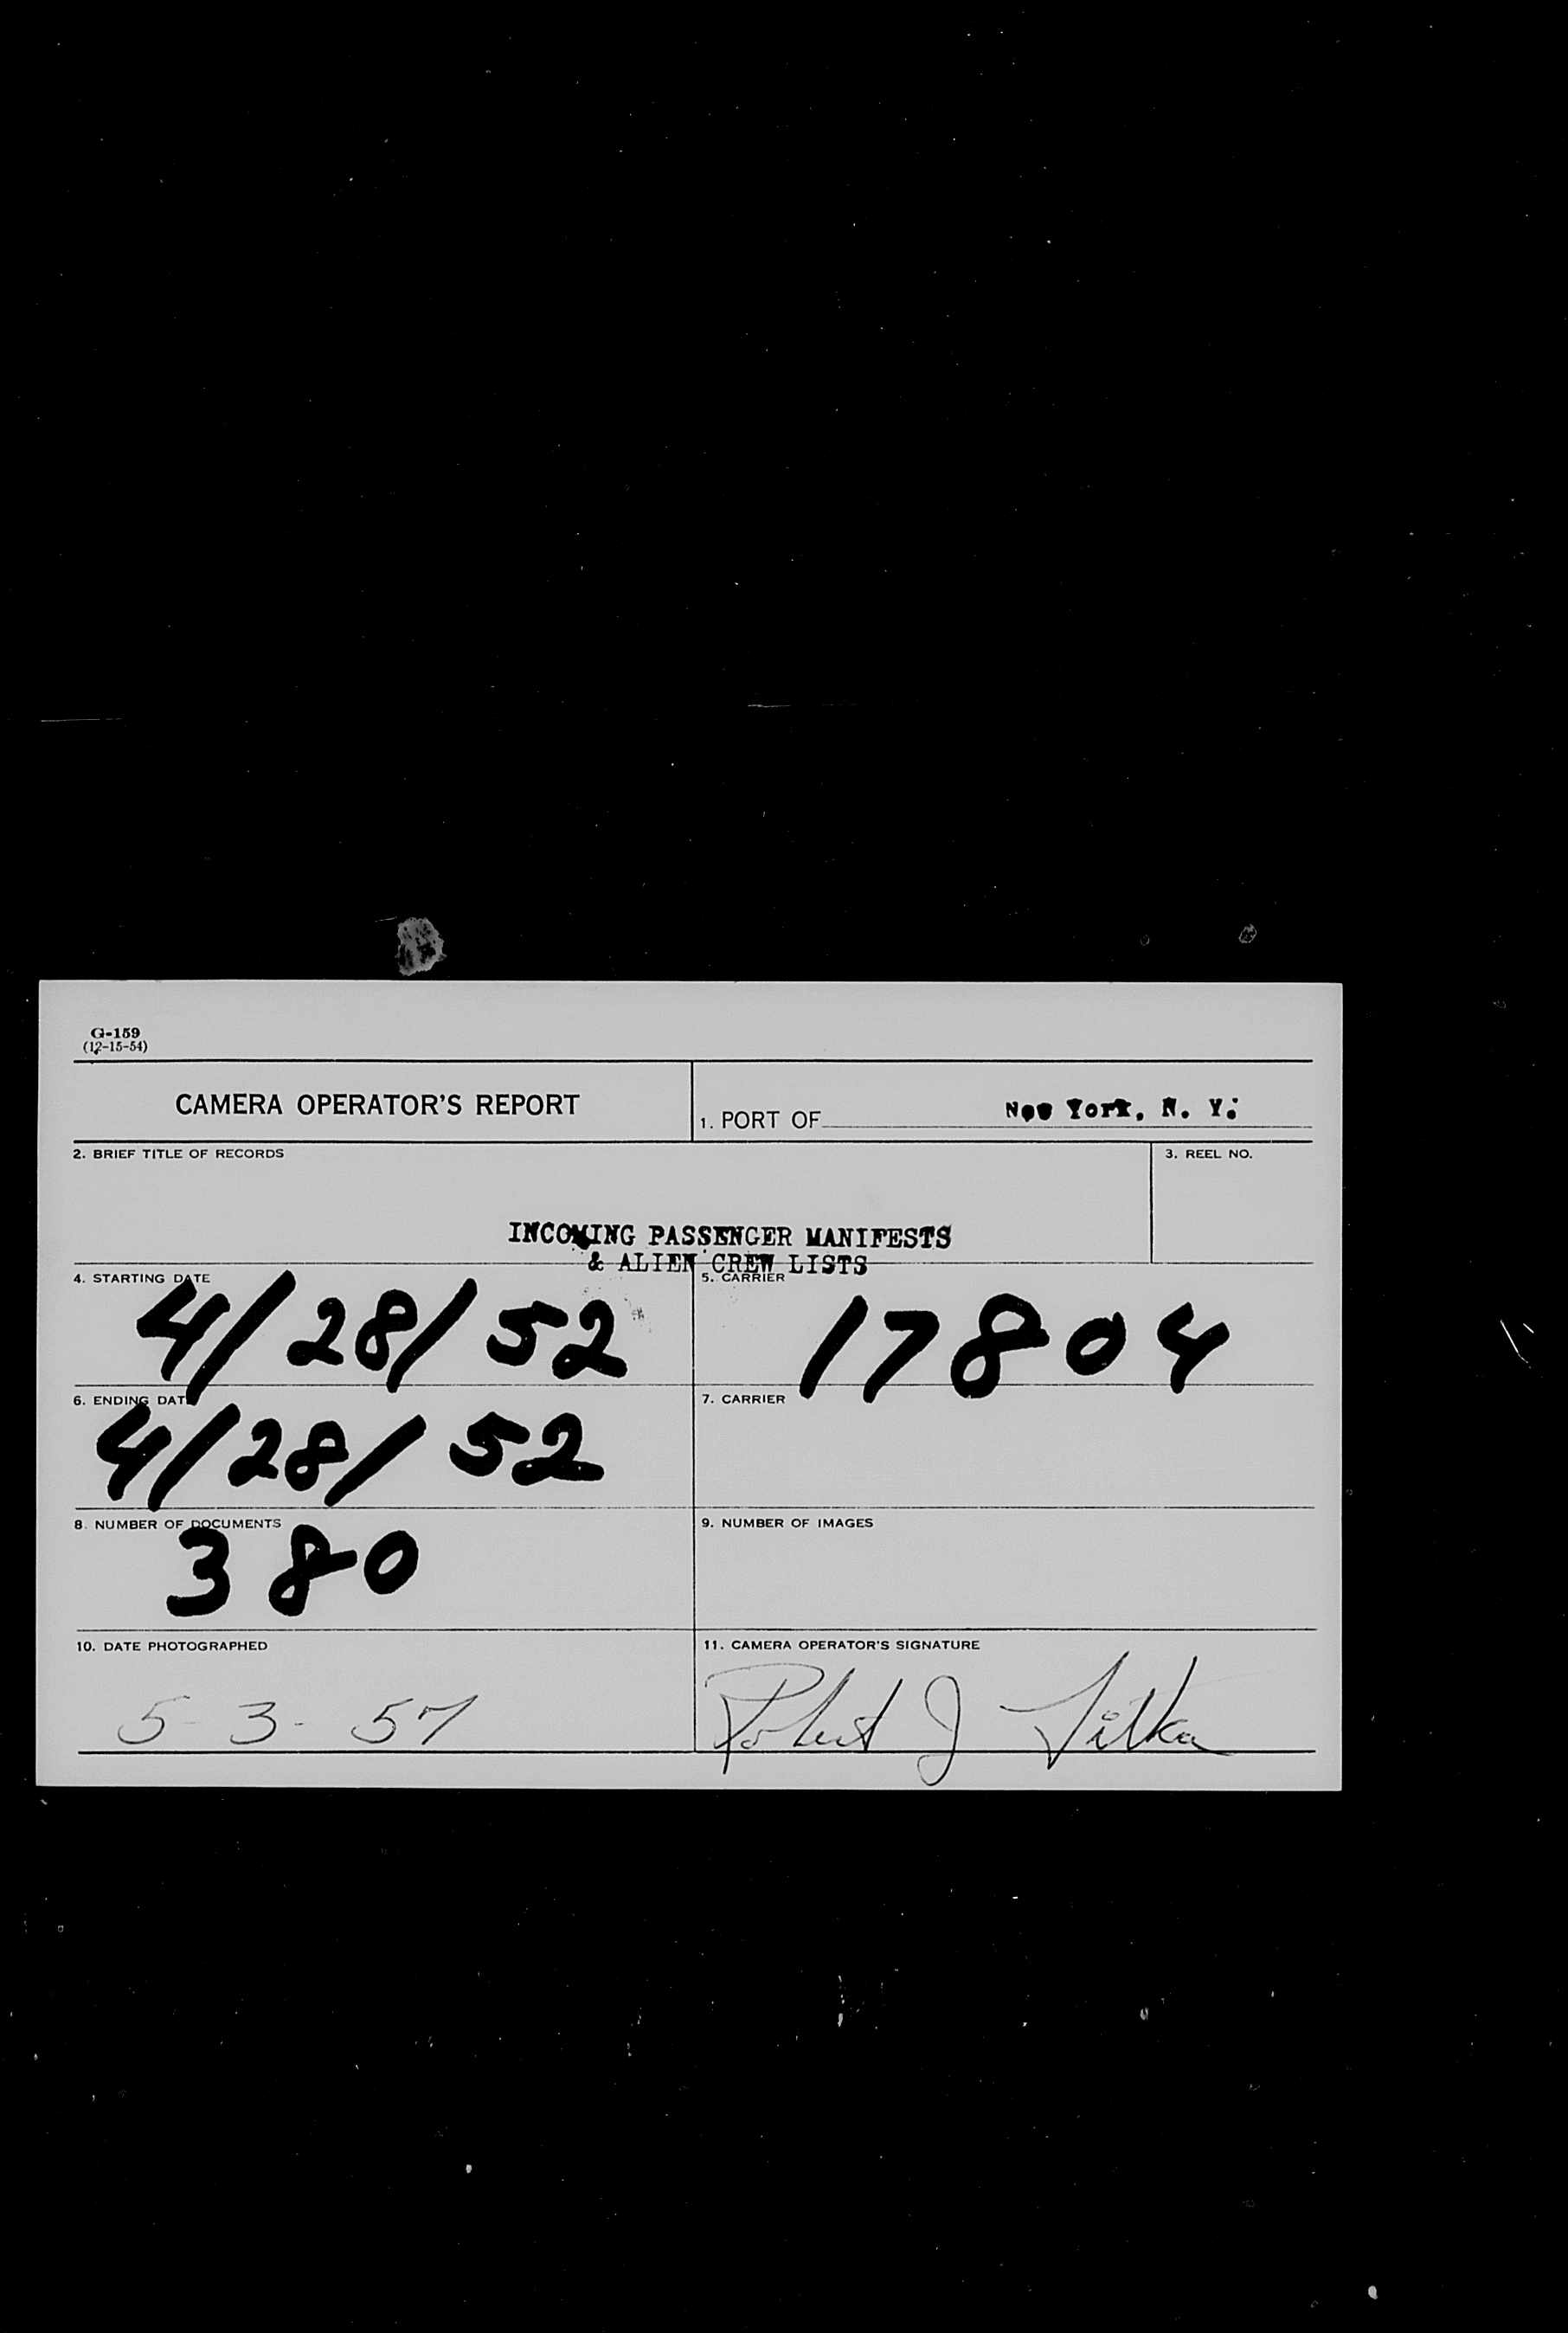 G-159
(12-15-54)
CAMERA OPERATOR'S REPORT
1. PORT OF New York, N. Y.
2. BRIEF TITLE OF RECORDS
3. REEL NO.
INCOMING PASSENGER MANIFESTS
& ALIEN CREW LISTS
4. STARTING DATE
4/28/52
5. CARRIER
17804
6. ENDING DATE
4/28/52
7. CARRIER
8. NUMBER OF DOCUMENTS
380
9. NUMBER OF IMAGES
10. DATE PHOTOGRAPHED
5-3-57
11. CAMERA OPERATOR'S SIGNATURE
Robert J